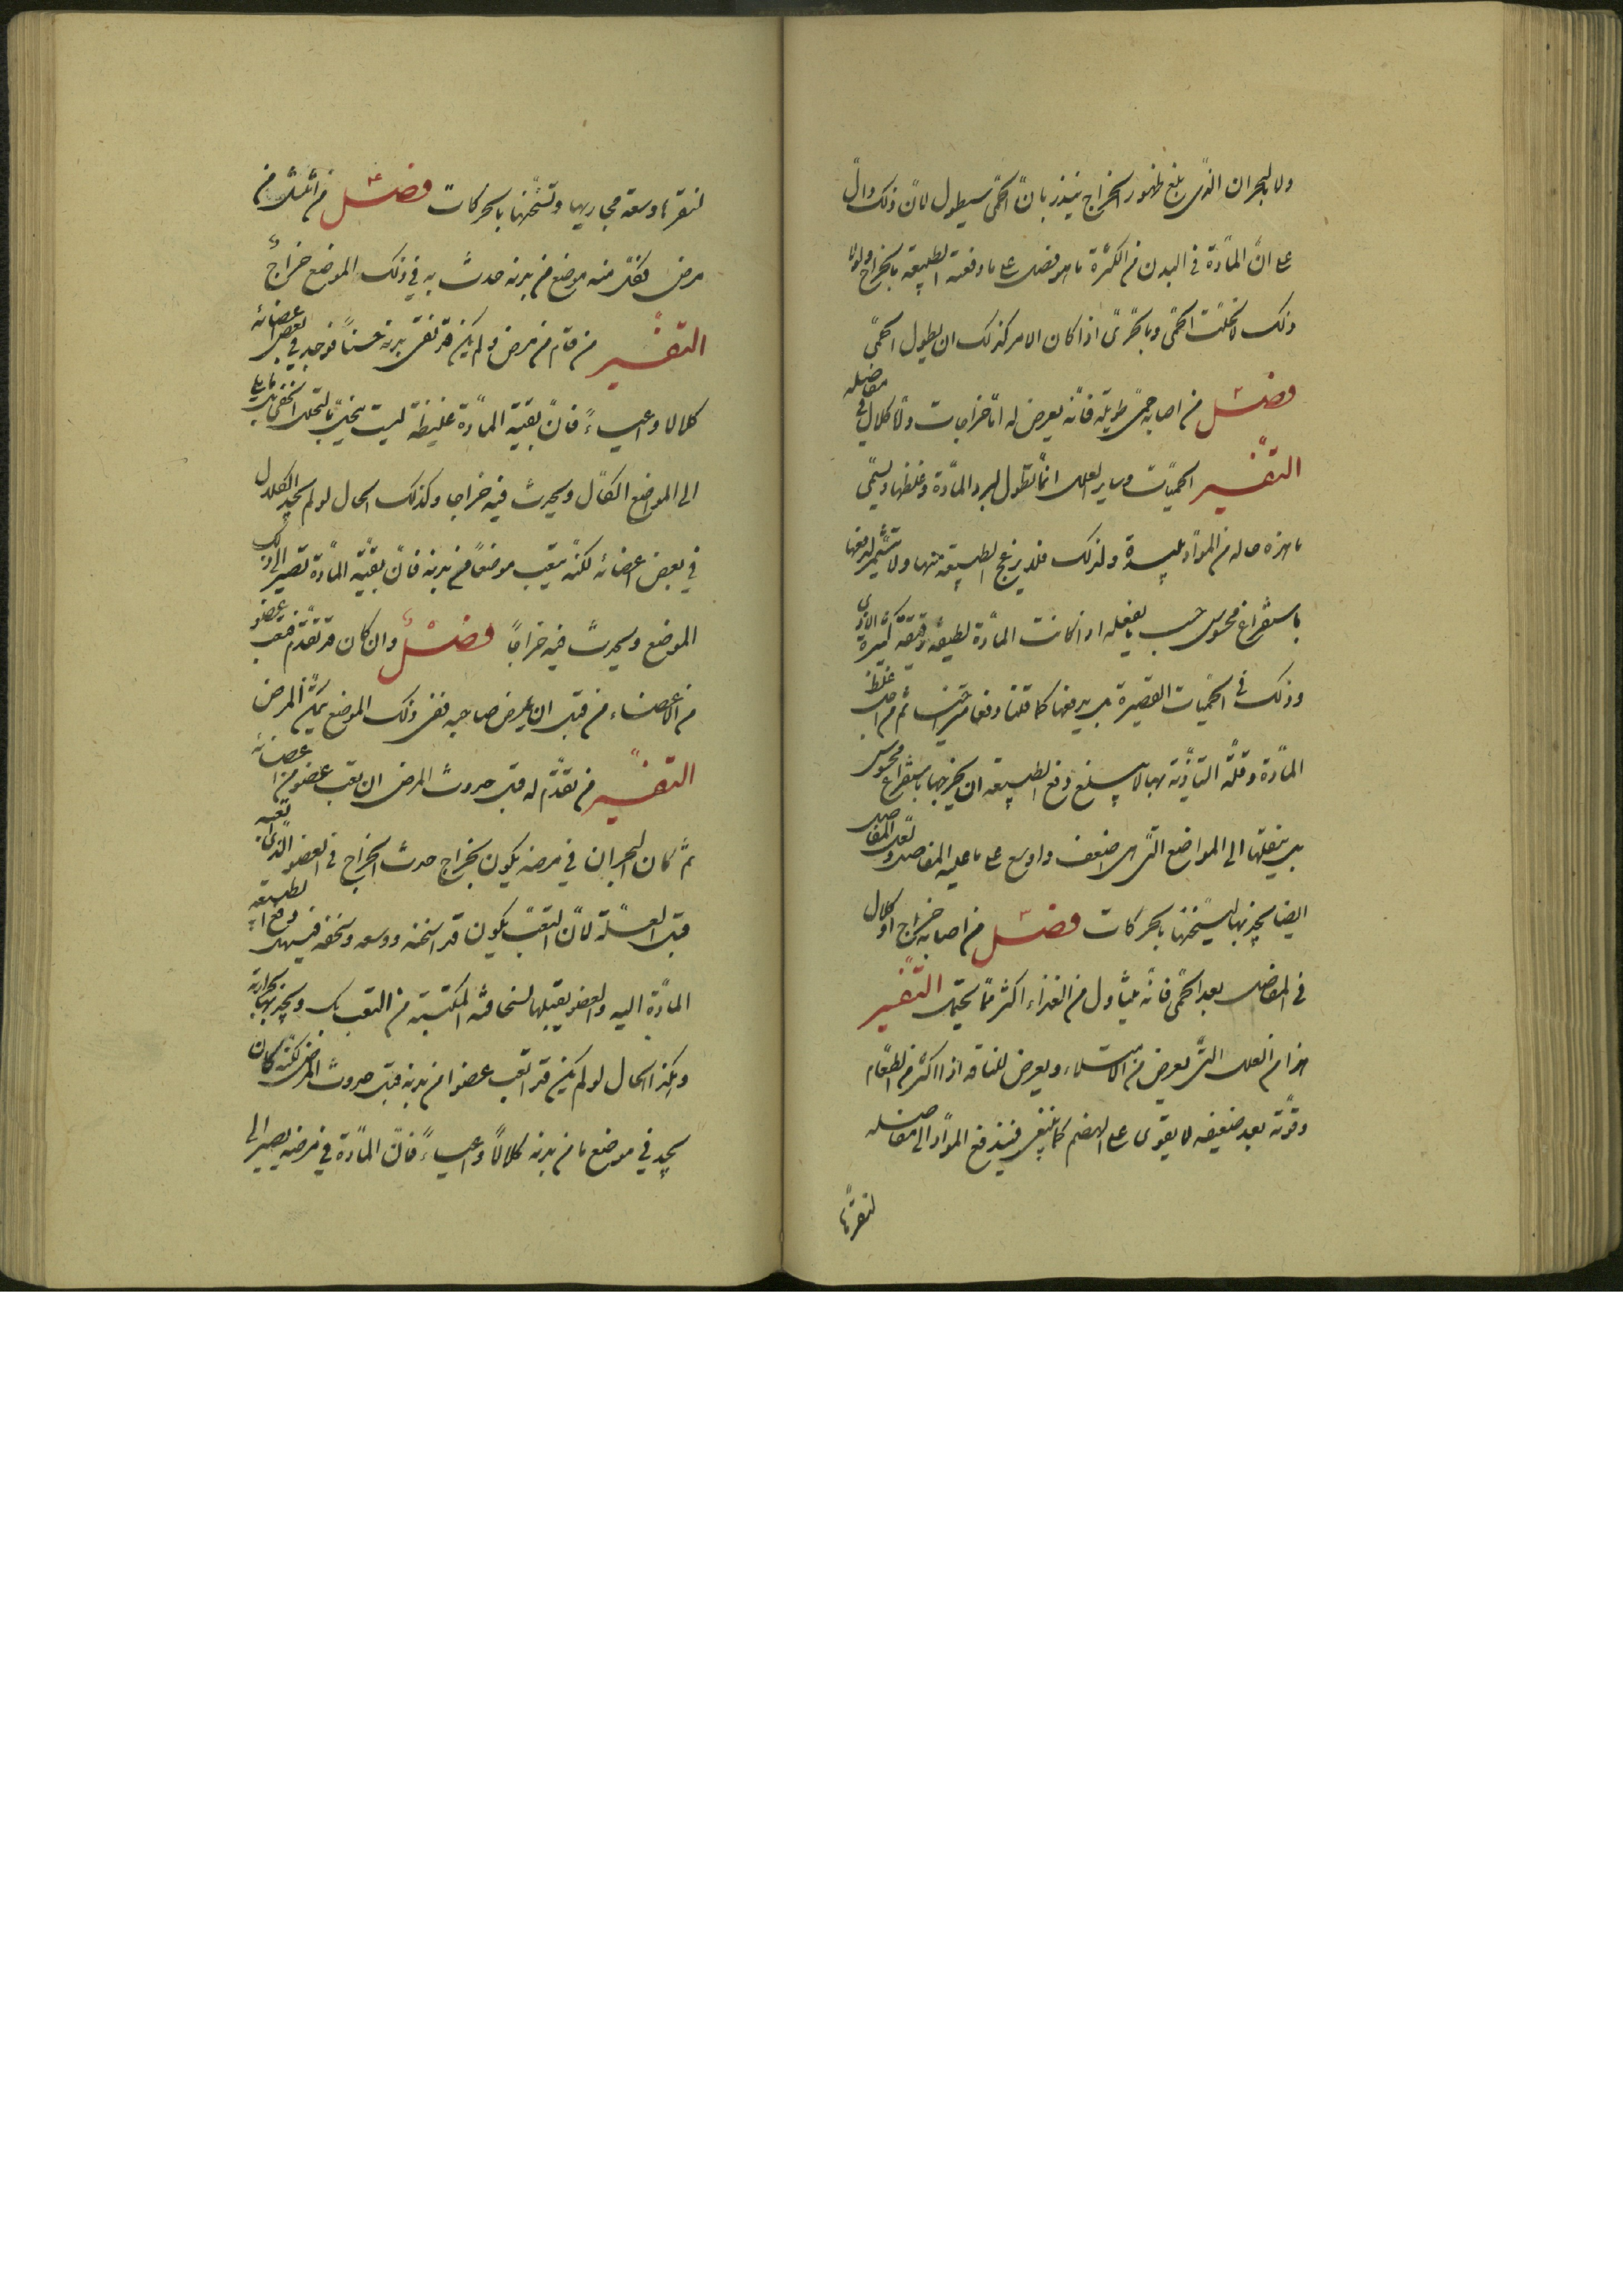 ولا بالبحران الذي بلغ ظهور الخراج ينذر بان الحمى سيطول لان ذلك دال
على ان المادة في البدن من الكثرة ما هو فضل على ما دفعته الطبيعة بالخراج ولولا
ذلك لانحلت الحمى وبالحرى اذا كان الامر كذلك ان يطول الحمى
فصل من اصابه حمى طويلة فانه يعرض له اما خراجات واما كلال في مفاصله
التفسير الحميات وساير العلل انما تطول لبرد المادة وغلظها ويسمى
ما هذه حاله من المواد بليدة ولذلك فلا يزعج الطبيعة منها ولا تتشمر لدفعها
باستفراغ محسوس حسب ما يفعله اذا كانت المادة لطيفة رقيقة كثيرة الاذى
وذلك في الحميات القصيرة بل يدفعها كما قلنا دفعا ثم من اجل غلظ
المادة وقلة التأذي بها لا يبلغ دفع الطبيعة ان يخرجها باستفراغ محسوس
بل ينقلها الى المواضع التي هي اضعف واوسع على ما عليه المفاصل ولعل المفاصل
ايضا يجذبها لتسخنها بالحركات فصل من اصابه خراج او كلال
في المفاصل بعد الحمى فانه يتناول من الغذاء اكثر مما يحتمل التفسير
هذا من العلل التي تعرض من الامتلاء ويعرض للناقه اذا اكثر من الطعام
وقوته بعد ضعيفة لا يقوى على الهضم كما ينبغي فيندفع المواد الى مفاصله
لتقعرها
لتقعرها وسعة مجاريها وتسخنها بالحركات فصل من انتشل من
مرض فكل منه موضع من بدنه حدث به في ذلك الموضع خراج
التفسير من قام من مرض ولم يكن قد نقى بدنه حسنا فوجد في بعض اعضائه
كلالا واعياء فان بقية المادة غليظة ليست بالتحلل الخفي بل مايل
الى الموضع الكال ويحدث فيه خراجا وكذلك الحال لو لم يجد الكلال
في بعض اعضائه لكنه يتعب موضعا من بدنه فان بقية المادة تصير الى ذلك
الموضع ويحدث فيه خراجا فصل وان كان قد تقدم فتعب عضو
من الاعضاء من قبل ان يمرض صاحبه ففي ذلك الموضع يتمكن المرض
التفسير من تقدم له قبل حدوث المرض ان تعب عضو من اعضائه
ثم كان البحران في مرضه يكون بخراج حدث الخراج في العضو الذي اتعبه
قبل العلة لان التعب يكون قد اسخنه ووسعه وسخفه فيسهل دفع الطبيعة
المادة اليه والعضو يقبلها لسخافته المكتسبة من التعب بل ويجذبها بحرارته
وهكذا الحال لو لم يكن قد اتعب عضوا من بدنه قبل حدوث المرض لكنه كان
يجد في موضع ما من بدنه كلالا واعياء فان المادة في مرضه يصير الى